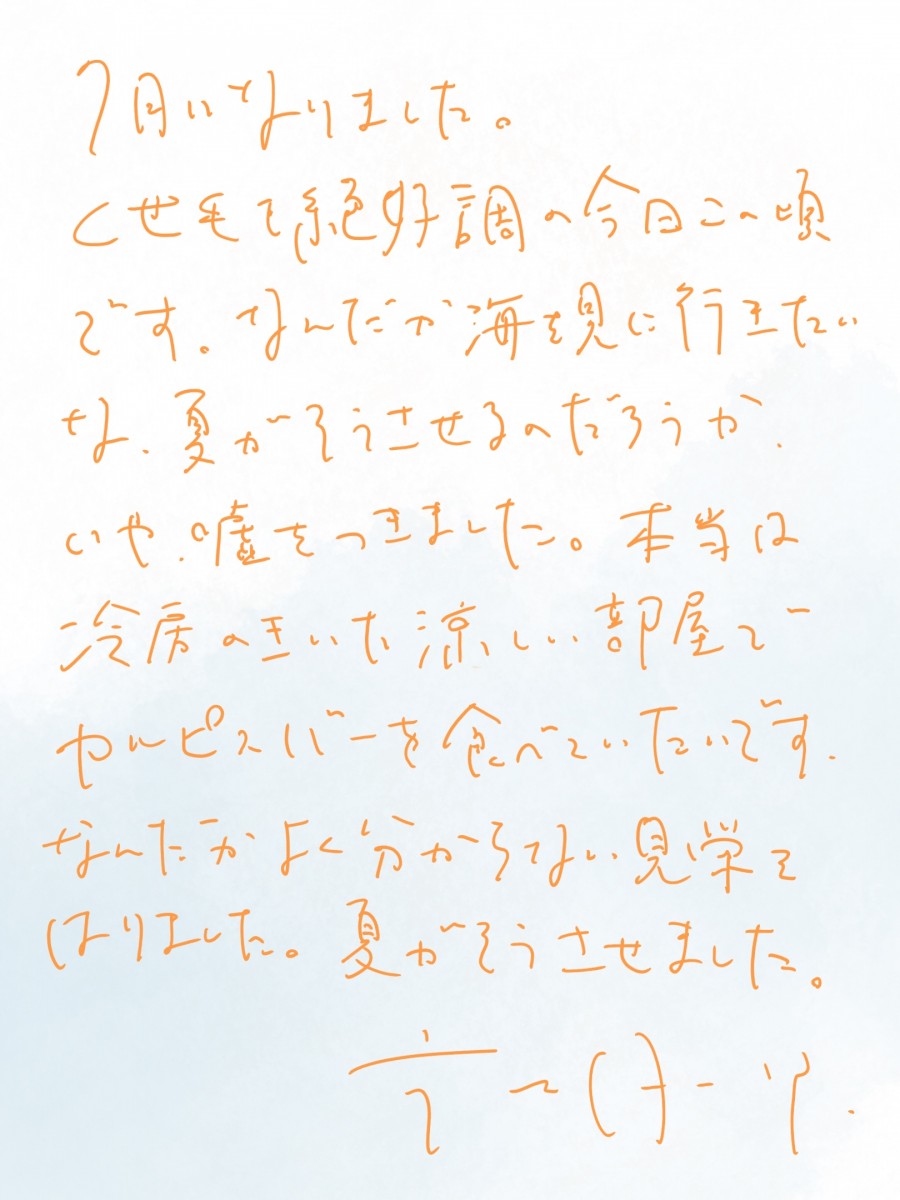 7月になりました。
くせ毛も絶好調の今日この頃
です。なんだか海を見に行きたい
な、夏がそうさせるのだろうか、
いや、嘘をつきました。本当は
冷房のきいた涼しい部屋で
カルピスバーを食べていたいです、
なんだかよく分からない見栄を
はりました。夏がそうさせました。